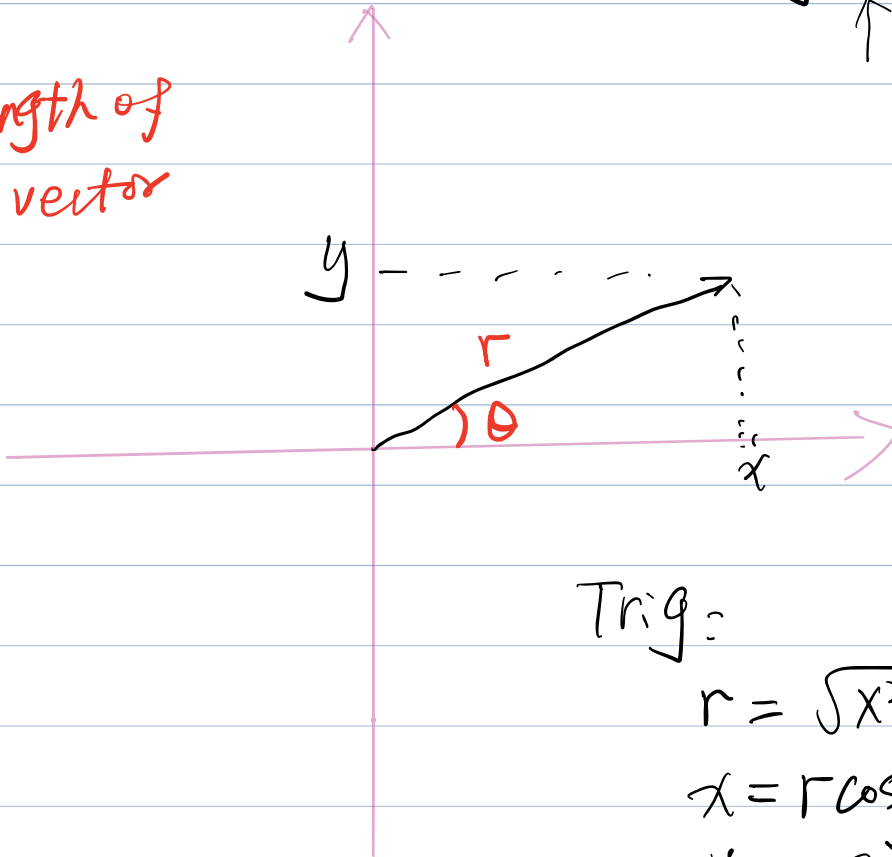 ngth of
vector
y
r
θ
x
Trig:
r = √x²
x = r cos